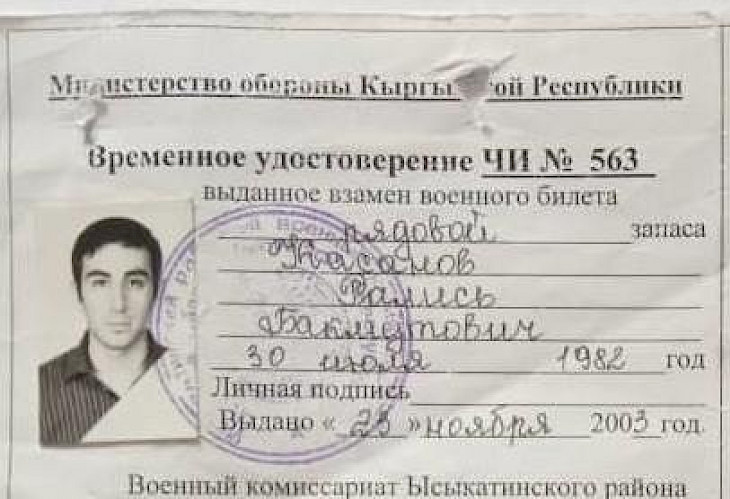 Министерство обороны Кыргызской Республики
Временное удостоверение ЧИ № 563
выданное взамен военного билета
рядовой запаса
Касанов
Рамись
30 июля 1982 год
Личная подпись
Выдано « 25 » ноября 2003 год.
Военный комиссариат Ысыкатинского района